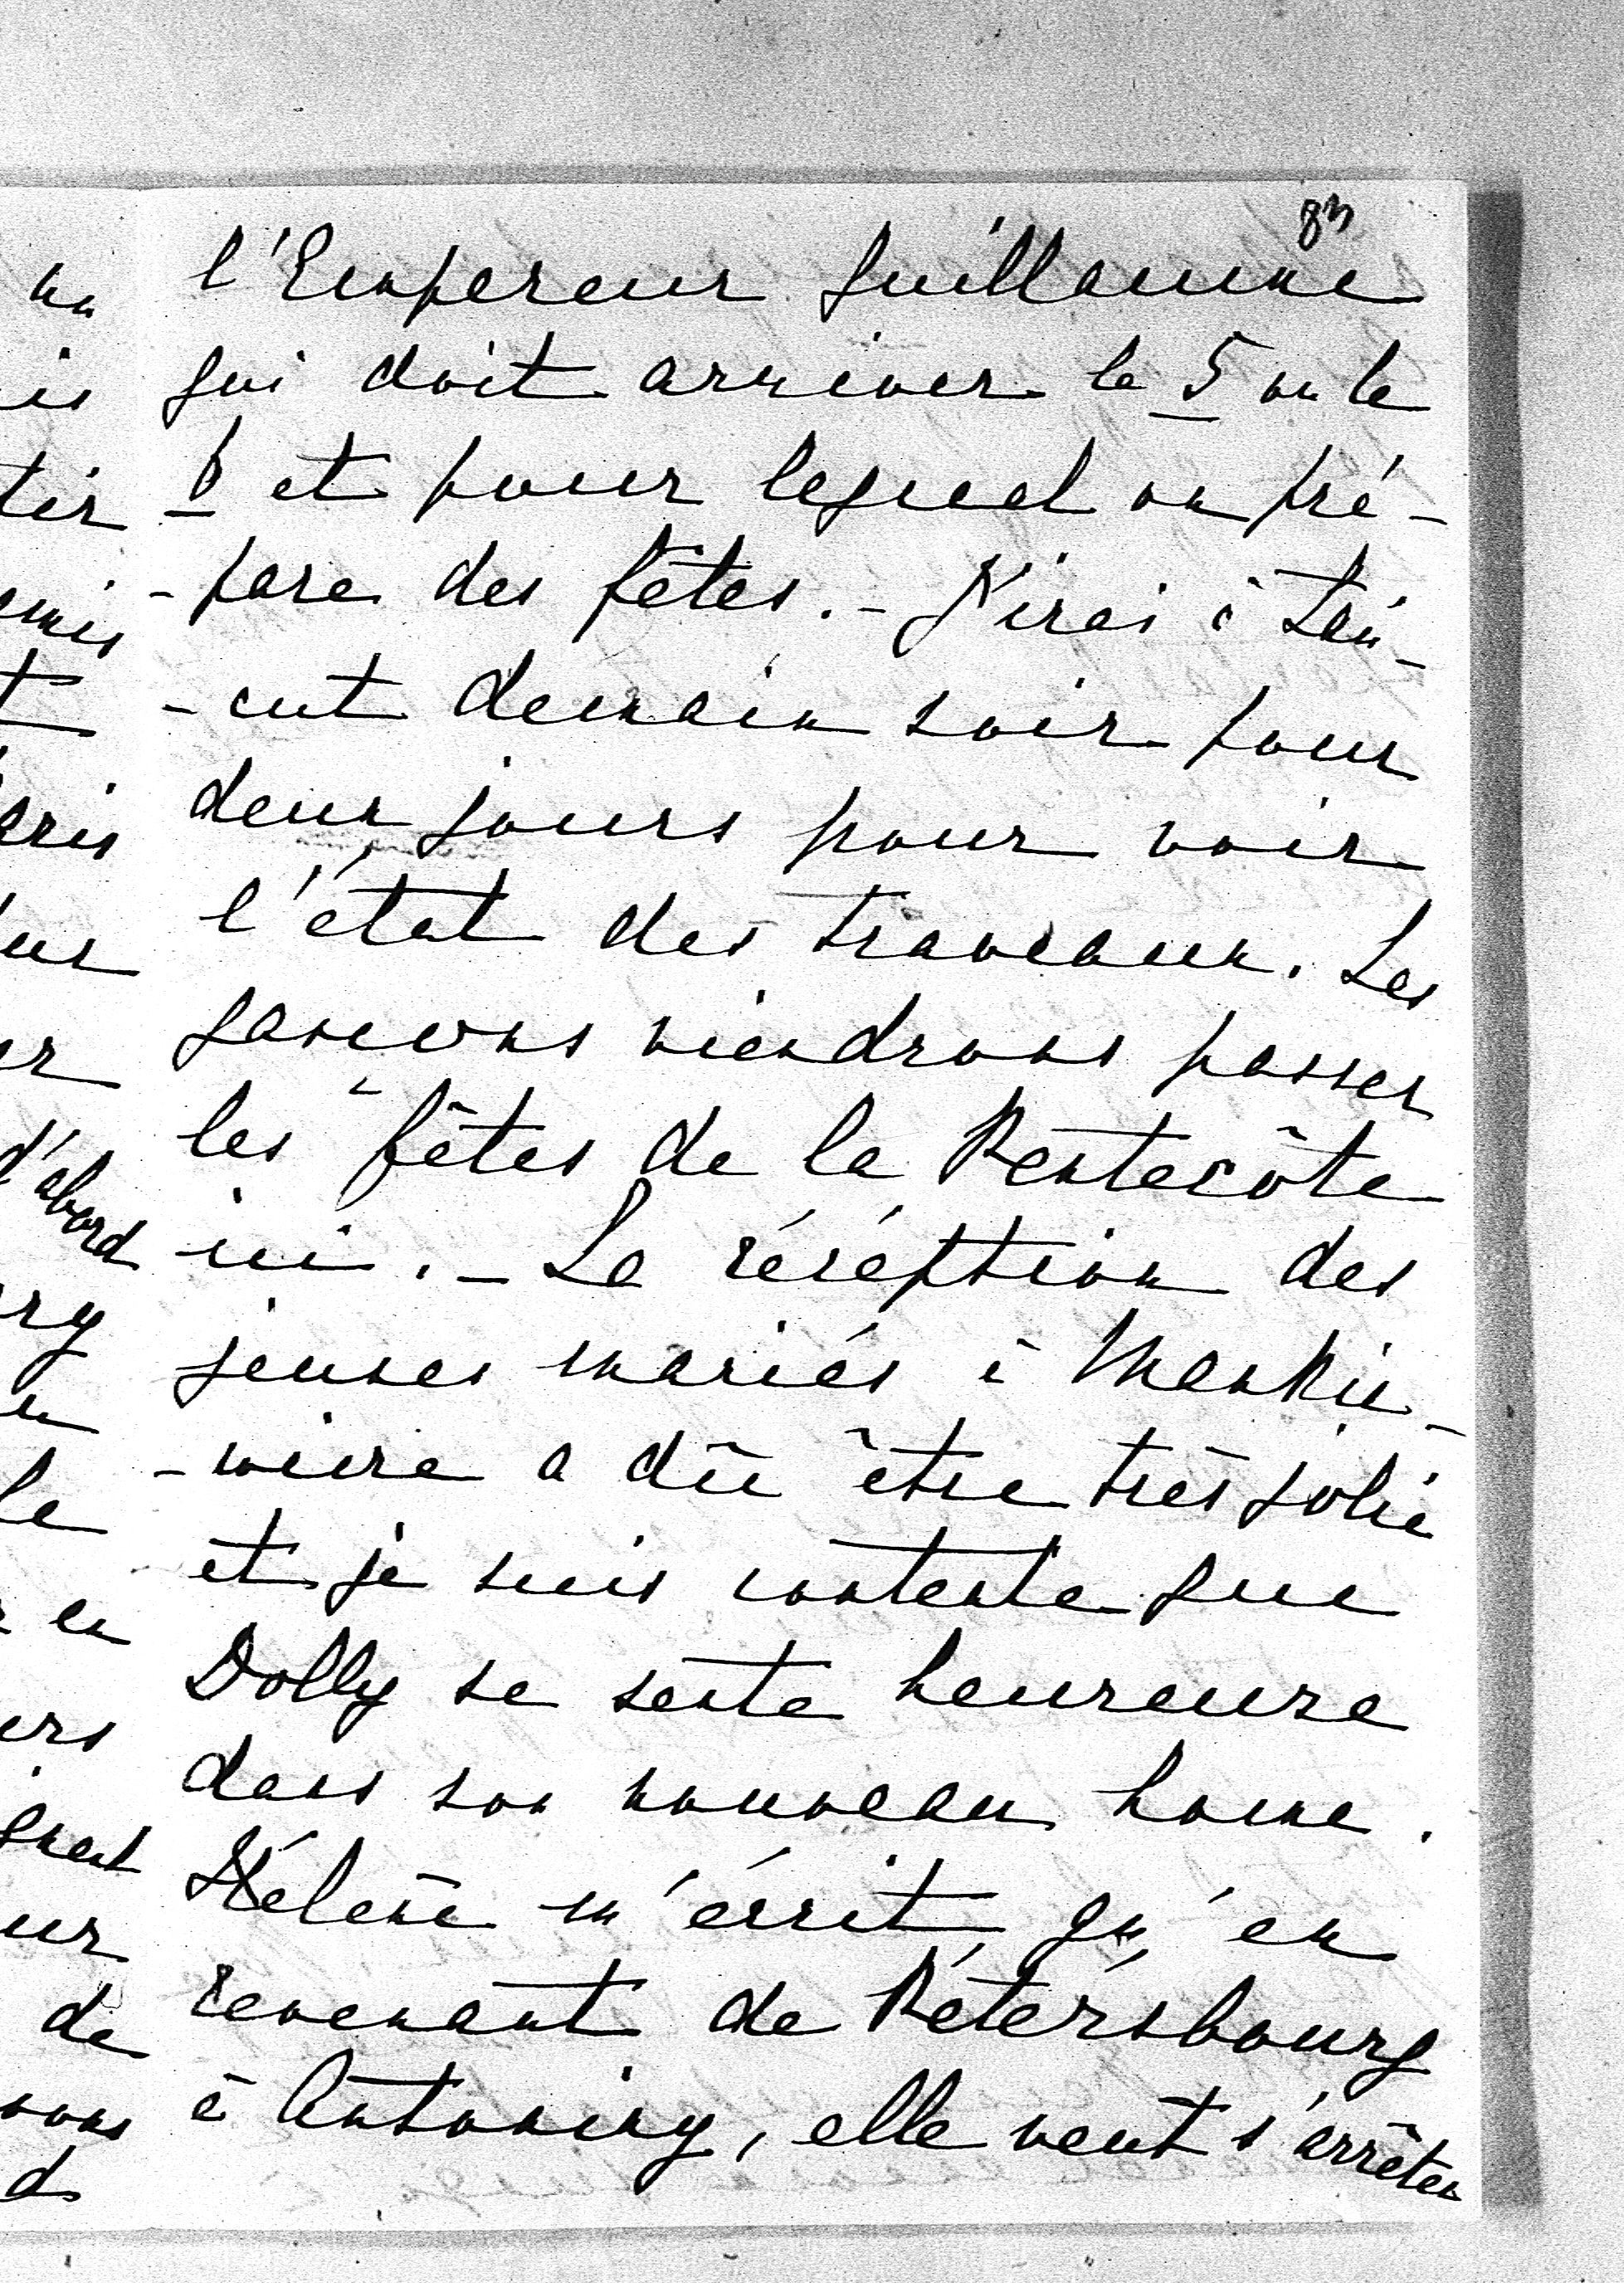 83
l'Empereur Guillaume
qui doit arriver le 5 ou le
6 et pour lequel on pré-
-pare des fêtes. - J'irai à Łań-
-cut demain soir pour
deux jours pour voir
l'état des travaux. Les
garçons viendrons passer
les fêtes de la Pentecôte
ici. - La réception des
jeunes mariés à Mankie-
-wicze a dû être très jolie
et je suis contente que
Dolly se sente heureuse
dans son nouveau home.
Hélène m'écrit, qu'en
revenant de Pétersbourg
à Antoniny, elle veut s'arrêter